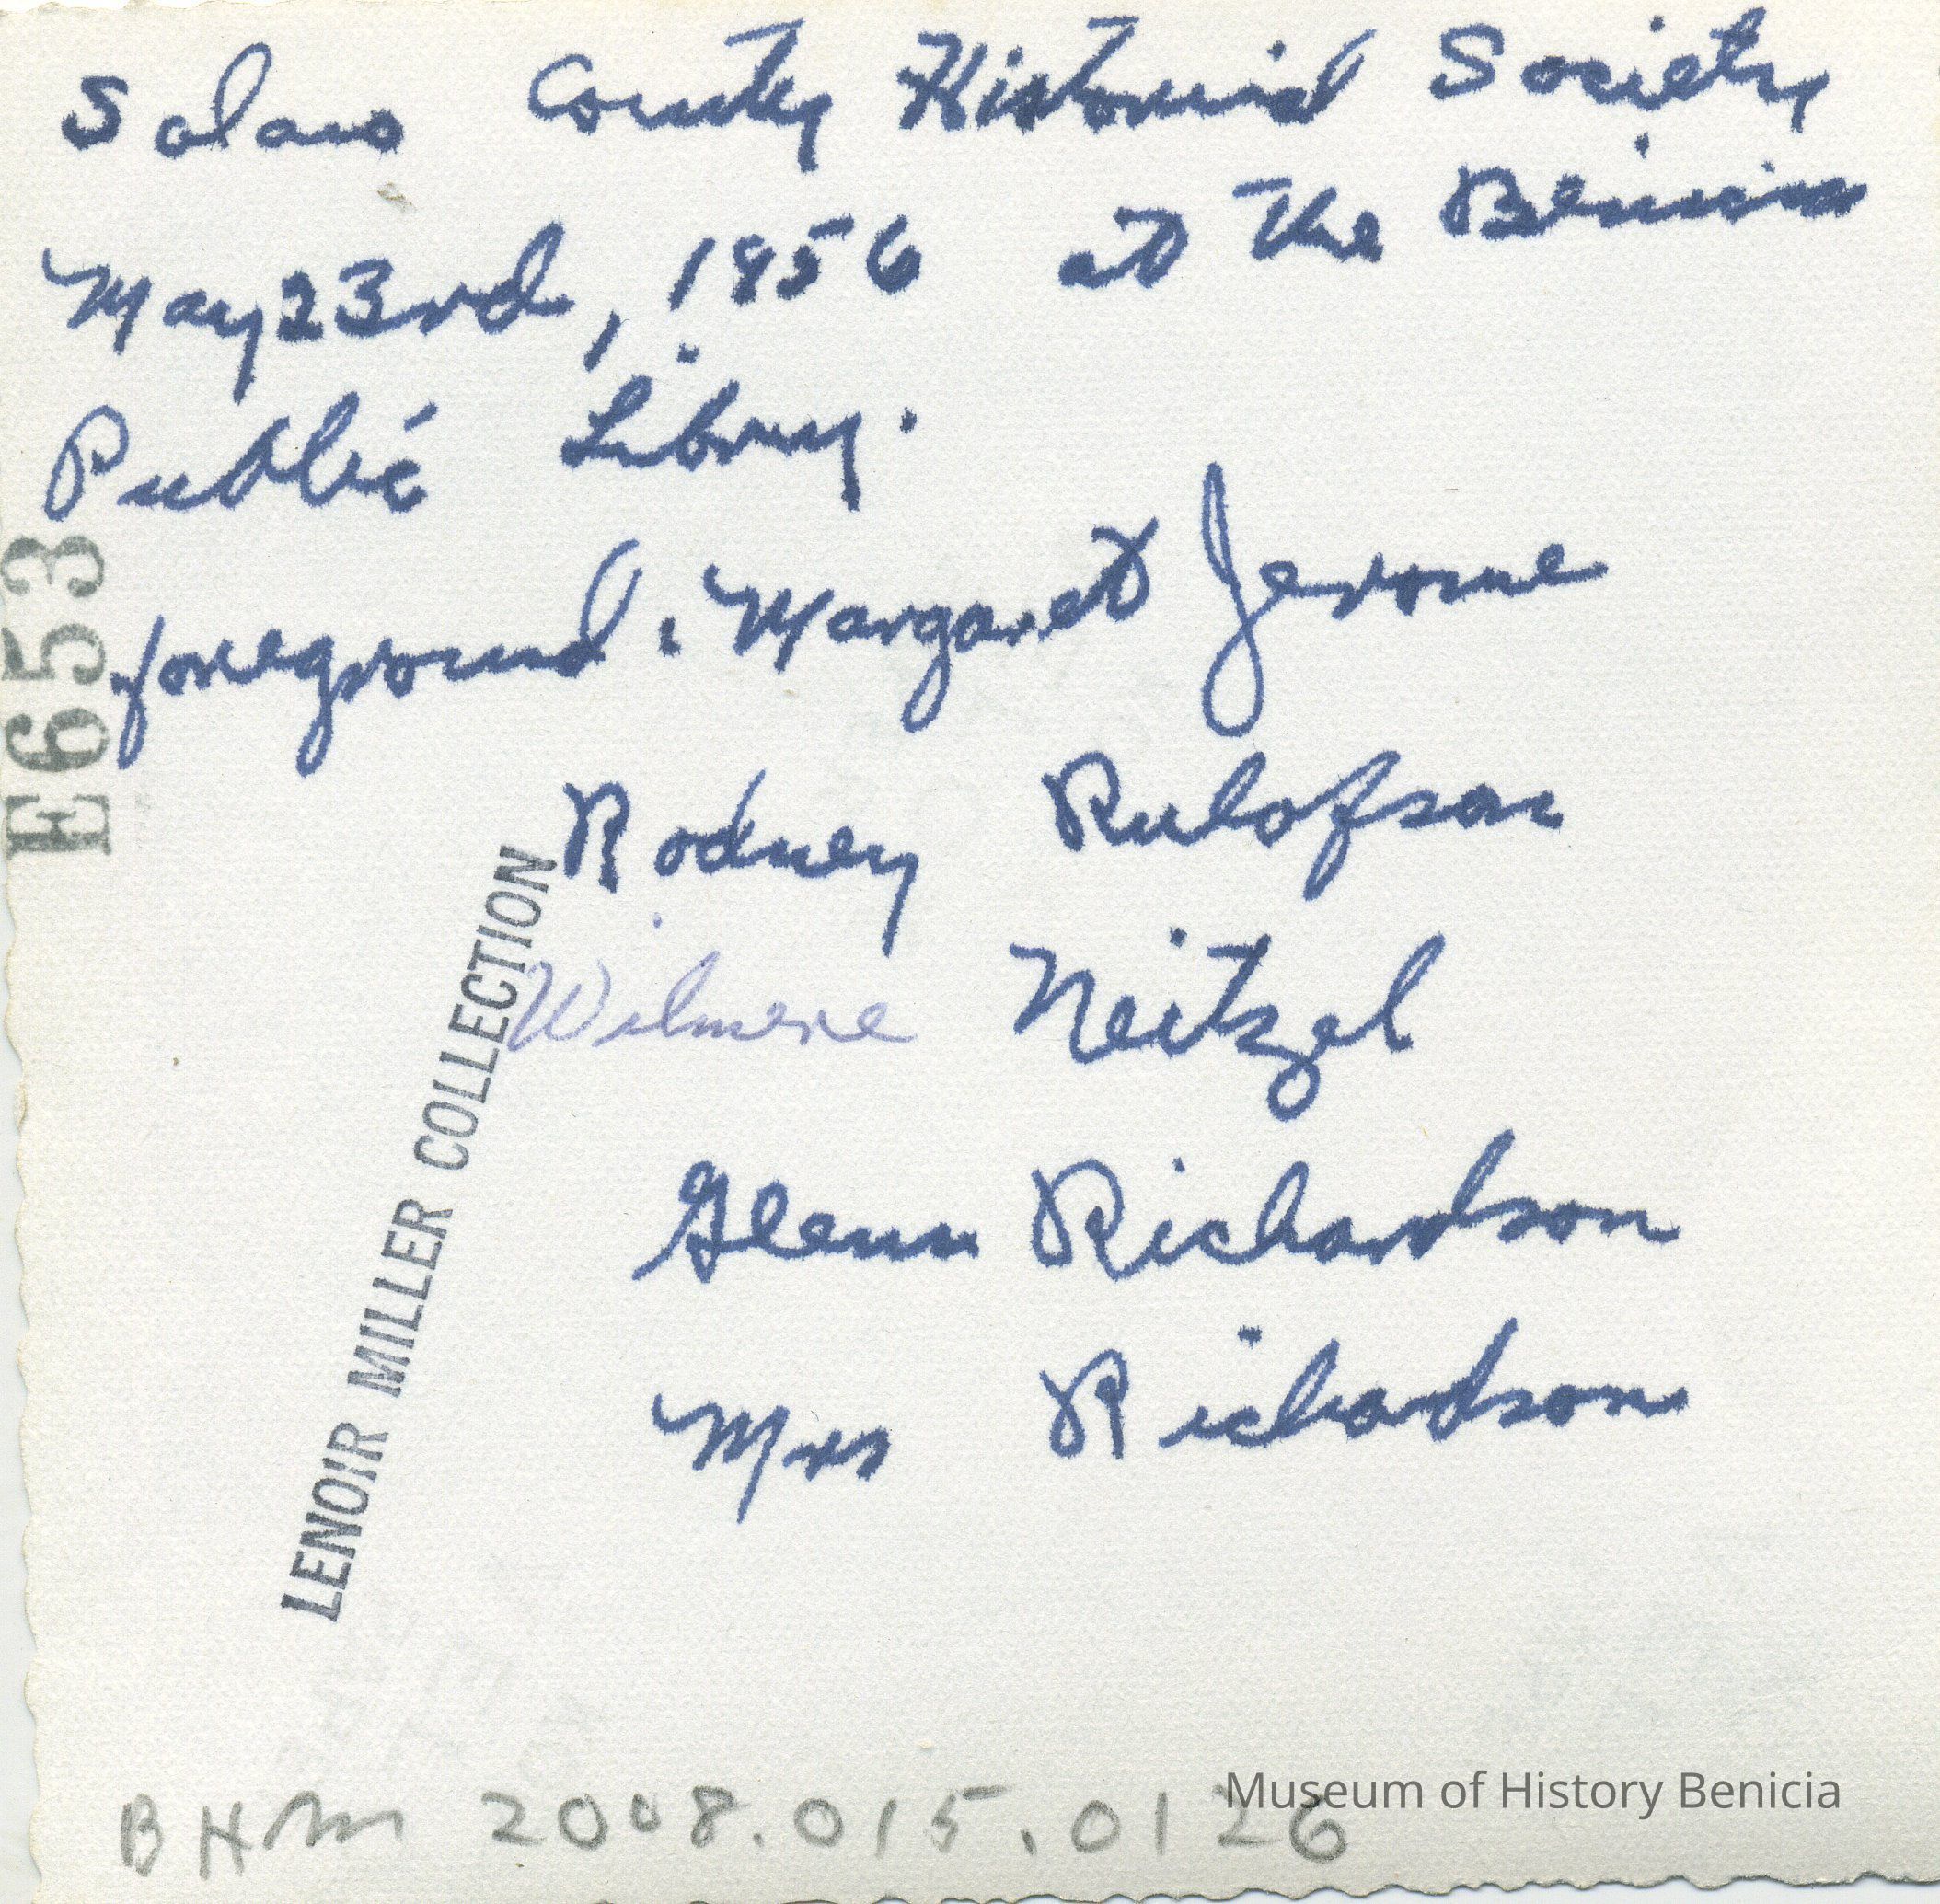 Solano County Historical Society
May 23rd, 1856 at the Benicia
Public Library.
foreground: Margaret Jerome
Rodney Rulofson
Wilmere Neitzel
Glenn Richardson
Mrs Richardson
E653
LENOIR MILLER COLLECTION
BHM 2008.015.0126
Museum of History Benicia